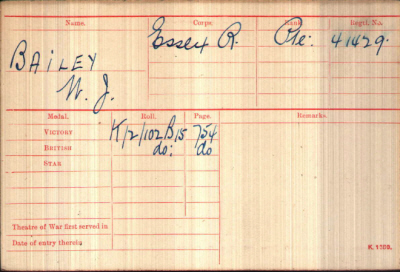 Name. Corps. Rank. Regtl. No.
BAILEY Essex R. Pte: 41429.
W. J.
Medal. Roll. Page. Remarks.
VICTORY K/2/102B15 754
BRITISH do: do
STAR
Theatre of War first served in
Date of entry therein
K. 1380.